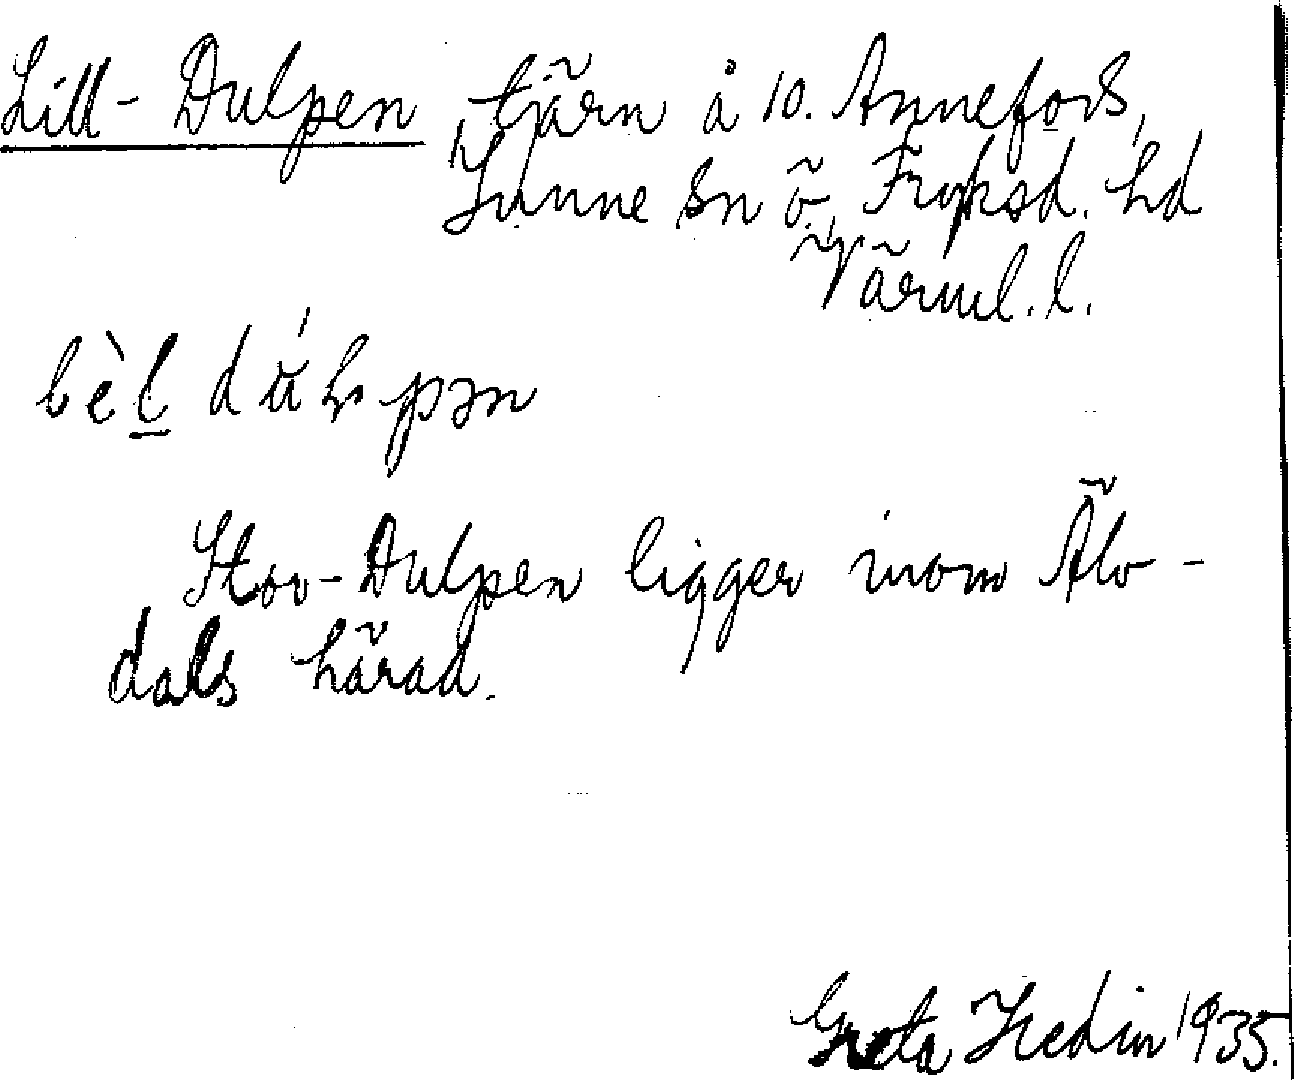 Lill-Dulpen, tjärn å 10. Annefors,
Sunne sn ö. Fryksd. hd
Värml. l.
Stor-Dulpen ligger inom Älv-
dals härad.
Greta Hedin 1935.